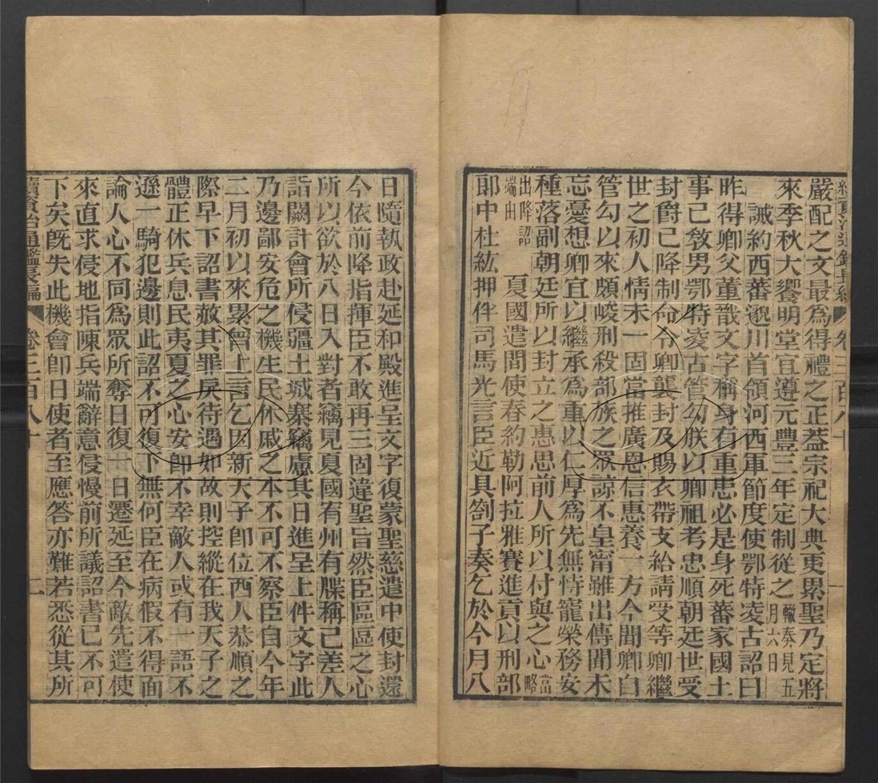 續資治通鑑長編 卷三百八十
嚴配之文最為得禮之正蓋宗祀大典更累聖乃定將
來季秋大饗明堂宜遵元豐三年定制從之轍奏見五月六日
誡約西蕃邈川首領河西軍節度使鄂特凌古詔曰
昨得卿父董戩文字稱身有重患必是身死蕃家國土
事已敎男鄂特凌古管勾朕以卿祖考忠順朝廷世受
封爵已降制命令卿襲封及賜衣帶支給請受等卿繼
世之初人情未一固當推廣恩信惠養一方今聞卿自
管勾以來頗峻刑殺部族之眾諒不皇甯雖出傳聞未
忘憂想卿宜以繼承為重以仁厚為先無恃寵榮務安
種落副朝廷所以封立之惠思前人所以付與之心富略
出降詔端由 夏國遣間使春約勒阿拉雅賽進貢以刑部
郞中杜紘押伴司馬光言臣近具劄子奏乞於今月八
日隨執政赴延和殿進呈文字復蒙聖慈遣中使封還
今依前降指揮臣不敢再三固違聖旨然臣區區之心
所以欲於八日入對者竊見夏國宥州有牒稱已差人
詣闕計會所侵疆土城寨竊慮其日進呈上件文字此
乃邊鄙安危之機生民休戚之本不可不察臣自今年
二月初以來累曾上言乞因新天子卽位西人恭順之
際早下詔書赦其罪戾待遇如故則控縱在我天子之
體正休兵息民夷夏之心安卽不幸敵人或有一語不
遜一騎犯邊則此詔不可復下無何臣在病假不得面
論人心不同為眾所奪日復一日遷延至今敵先遣使
來直求侵地指陳兵端辭意侵慢前所議詔書已不可
下矣旣失此機會卽日使者至應答亦難若悉從其所
續資治通鑑長編 卷三百八十 二